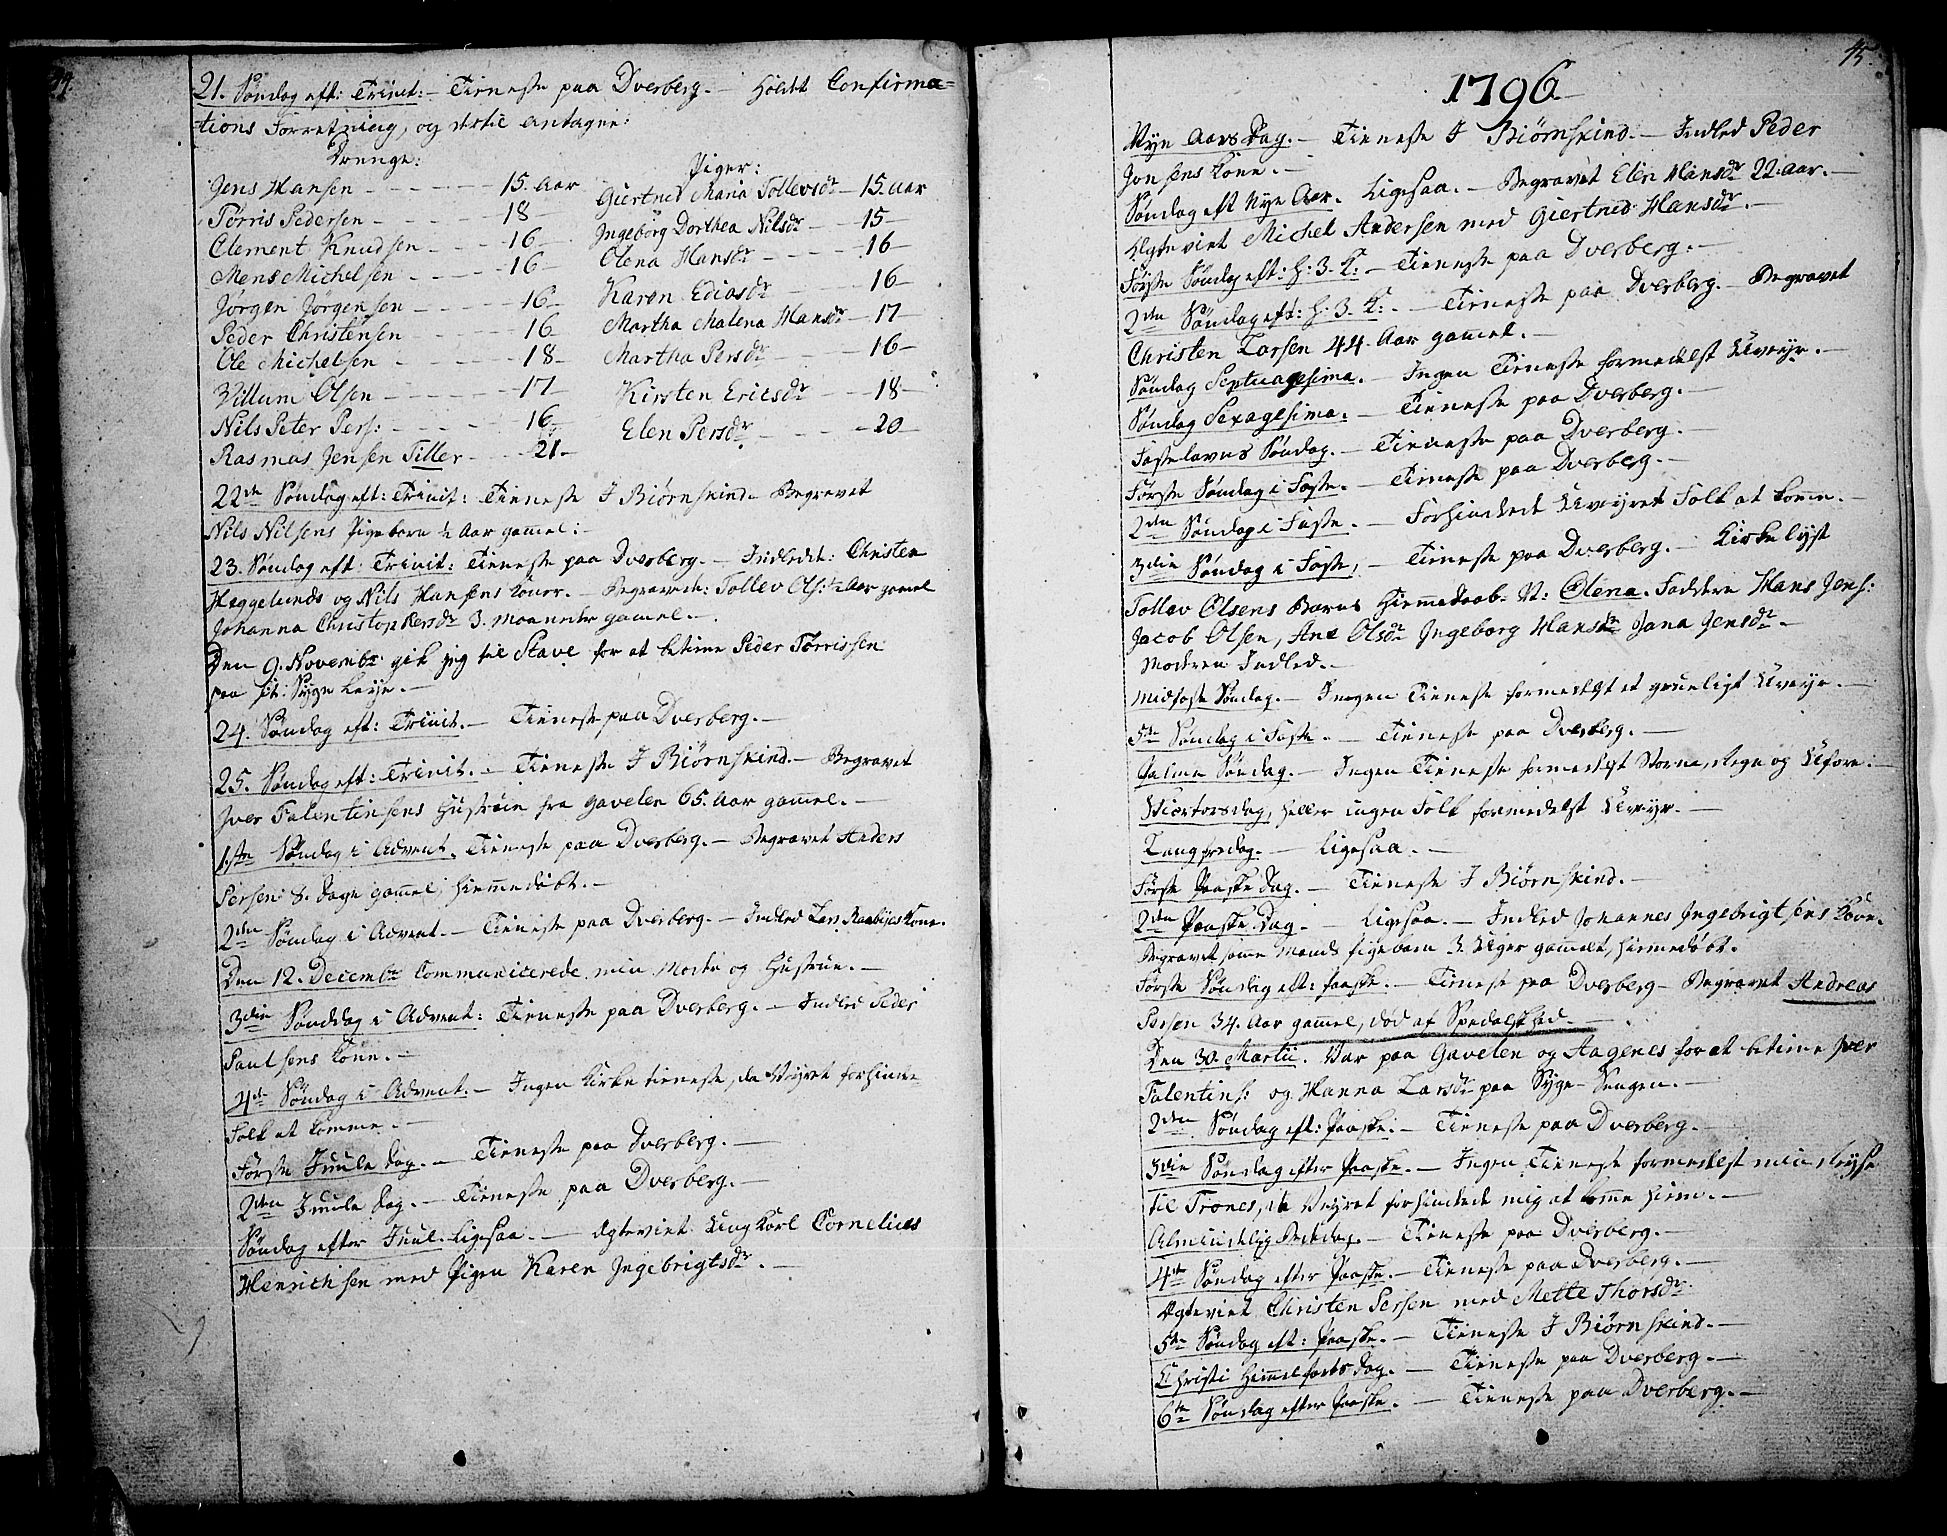 44.
21. Søndag eft: Trinit: — Tieneste paa Dverberg. — Holdt Confirma=
tions Forretning, og dertil antagne:
Drenge:
Jens Hansen - - - - 15. Aar
Tørris Pedersen - - - - 18
Clement Knudsen - - - 16
Mens Michelsen - - - - 16
Jørgen Jørgensen - - - 16
Peder Christensen - - - 16
Ole Michelsen - - - - 18
Villum Olsen - - - - 17
Nils Peter Pers: - - - - 16
Rasmas Jensen Tiller - - - 21
Piger:
Giertrud Maria Tollevsdr — 15. Aar
Ingebörg Dorthea Nilsdr — 15
Olena Hansdr - - - - 16
Karen Ediasdr - - - 16
Martha Malena Hansdr — 17
Martha Persdr - - - 16
Kirsten Ericsdr - - - 18
Elen Persdr - - - - 20
22de Søndag eft: Trinit: Tieneste I Biørnskind. Begravet
Nils Nilsens Pigebarn ½ Aar gammel: —
23. Søndag eft: Trinit: Tieneste paa Dverberg. — Indledet: Christen
Heggelunds og Nils Hansens Koner. — Begravede: Tollev Ols: ½ Aar gamel
Johanna Christophersdr 3. Maaneder gamel. —
Den 9. Novembr gik jeg til Stave for at betiene Peder Tørrissen
paa sit Syge Leye. —
24. Søndag eft: Trinit. — Tieneste paa Dverberg. —
25. Søndag eft: Trinit. — Tieneste I Biørnskind. — Begravet
Iver Falentinsens Hustrue fra Gavelen 65. Aar gammel. —
1ste Søndag i Advent. Tieneste paa Dverberg. — Begravet Anders
Persen 8. Dage gammel, hiemmedøbt. —
2den Søndag i Advent. — Tieneste paa Dverberg. — Indled Lars Kone.
Den 12. Decembr Communicerede min Moder og Hustrue. —
3die Sønddag i Advent: Tieneste paa Dverberg. — Indled Peder
Paulsens Kone. —
4de Søndag i Advent. — Ingen Kirketieneste, da Veyret forhindrede
Folk at komme. —
Første Juule Dag. — Tieneste paa Dverberg. —
2den Juule Dag. — Tieneste paa Dverberg. —
Søndag efter Juul. Ligesaa. — Egteviet Ung Karl Cornelius
Henrichsen med Pigen Karen Ingebrigtsdr. —
45.
1796.
Nye Aars Dag. — Tieneste I Biørnskind. — Indled Peder
Jonsens Kone. —
Søndag eft Nye Aar. Ligesaa. — Begravet Elen Hansdr 22. Aar. —
Egteviet Michel Andersen med Giertrud Hansdr. —
Første Søndag eft: H: 3. K: — Tieneste paa Dverberg. —
2den Søndag eft: H: 3. K: — Tieneste paa Dverberg. — Begravet
Christen Larsen 44. Aar gamel. —
Søndag Septuagesima. — Ingen Tieneste formedelst Uveyr. —
Søndag Sexagesima. — Tieneste paa Dverberg. —
Fastelavns Søndag. — Tieneste paa Dverberg. —
Første Søndag i Faste. — Tieneste paa Dverberg. —
2den Søndag i Faste. — Forhindrede Uveyret Folk at kome. —
3die Søndag i Faste, — Tieneste paa Dverberg. — Kirkelyst
Tollev Olsens Barns Hiemmedaab. N: Olena. Faddere Hans Jens:
Jacob Olsen, Ane Olsdr Ingeborg Hansdr Jana Jensdr —
Moderen Indled. —
Midfaste Søndag. — Ingen Tieneste formedelst et grueligt Uveyr. —
5te Søndag i Faste. — Tieneste paa Dverberg. —
Palme Søndag. — Ingen Tieneste formedelst og Uføre. —
Skiertorsdag, heller ingen Folk formedelst Uveyr. —
Langfredag. — Ligesaa. —
Første Paaske Dag. — Tieneste I Biørnskind. —
2den Paaske Dag. — Ligesaa. — Indled Johannes Ingebrigtsens Kone.
Begravet same Mands Pigebarn 3. Uger gammelt, hiemmedøbt.
Første Søndag eft: Paaske. — Tieneste paa Dverberg — Begravet Andreas
Persen 34. Aar gammel, død af Spedalskhed. —
Den 30. Martii. Var paa Gavelen og Aagenes for at betiene Iver
Falentins: og Hanna Larsdr paa Syge-Sengen. —
2den Søndag eft: Paaske. — Tieneste paa Dverberg. —
3die Søndag efter Paaske. — Ingen Tieneste formedelst min Reyse
til Trones, da Veyret forhindrede mig at komme hiem. —
Almindelig Bededag. — Tieneste paa Dverberg. —
4de Søndag efter Paaske. — Tieneste paa Dverberg. —
Egteviet Christen Persen med Mette Thorsdr
5te Søndag eft: Paaske. — Tieneste I Biørnskind. —
Christi Himmelfarts Dag. — Tieneste paa Dverberg. —
6te Søndag efter Paaske. — Tieneste paa Dverberg. —